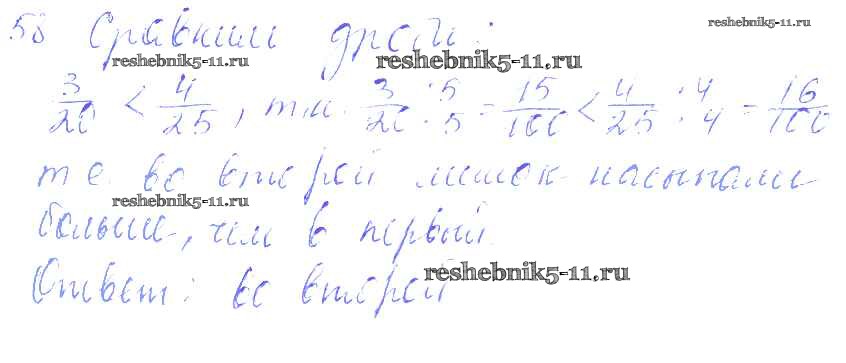 reshebnik5-11.ru
58 Сравним дроби:
reshebnik5-11.ru reshebnik5-11.ru
3/20 < 4/25, т.к. 3/20 :5/:5 = 15/100 < 4/25 :4/:4 = 16/100
т е. во второй мешок насыпали
reshebnik5-11.ru
больше, чем в первый.
reshebnik5-11.ru
Ответ: во второй